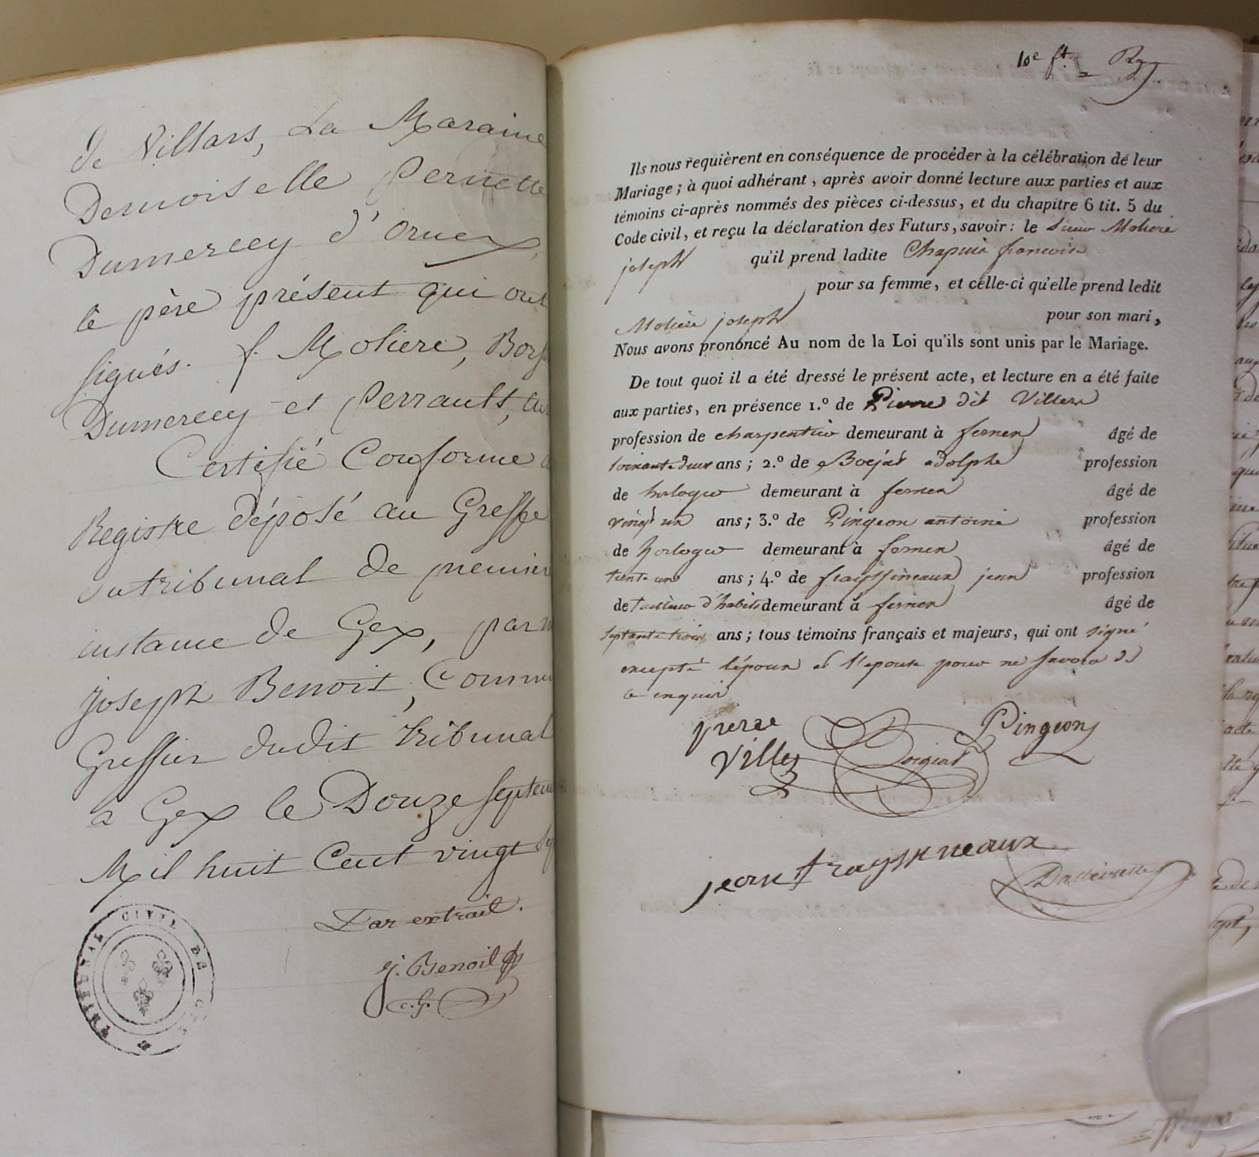 de Villars, La Maraine
Demoiselle Pernette
Dumerccy d'Ornex,
le père présent qui ont
signés. f. Moliere,
Dumerccy et Perrault,
Certifié Conforme
Registre déposé au Greffe
du tribunal de premier
instance de Gex, par
joseph Benoit, Commi
Greffier dudit tribunal
a Gex le Douze septem
Mil huit Cent vingt
Par extrait.
J. Benoit
c. G.
TRIBUNAL CIVIL DE GEX
10e ft.
Ils nous requièrent en conséquence de procéder à la célébration de leur
Mariage ; à quoi adhérant, après avoir donné lecture aux parties et aux
témoins ci-après nommés des pièces ci-dessus, et du chapitre 6 tit. 5 du
Code civil, et reçu la déclaration des Futurs, savoir : le Sieur Moliere
joseph qu'il prend ladite Chapuis francoise
pour sa femme, et celle-ci qu'elle prend ledit
Moliere joseph pour son mari,
Nous avons prononcé Au nom de la Loi qu'ils sont unis par le Mariage.
De tout quoi il a été dressé le présent acte, et lecture en a été faite
aux parties, en présence 1.º de Pierre dit Villers
profession de charpentier demeurant à ferney âgé de
soixante deux ans ; 2.º de Boejat adolphe profession
de horloger demeurant à ferney âgé de
vingt un ans ; 3.º de Pingeon antoine profession
de horloger demeurant à ferney âgé de
trente un ans ; 4.º de frayssineaux jean profession
de tailleur d'habits demeurant à ferney âgé de
septante trois ans ; tous témoins français et majeurs, qui ont signé
excepté l'époux et l'épouse pour ne savoir de
ce enquis
pierre
Villes
Boigeat
Pingeon
jean frayssineaux